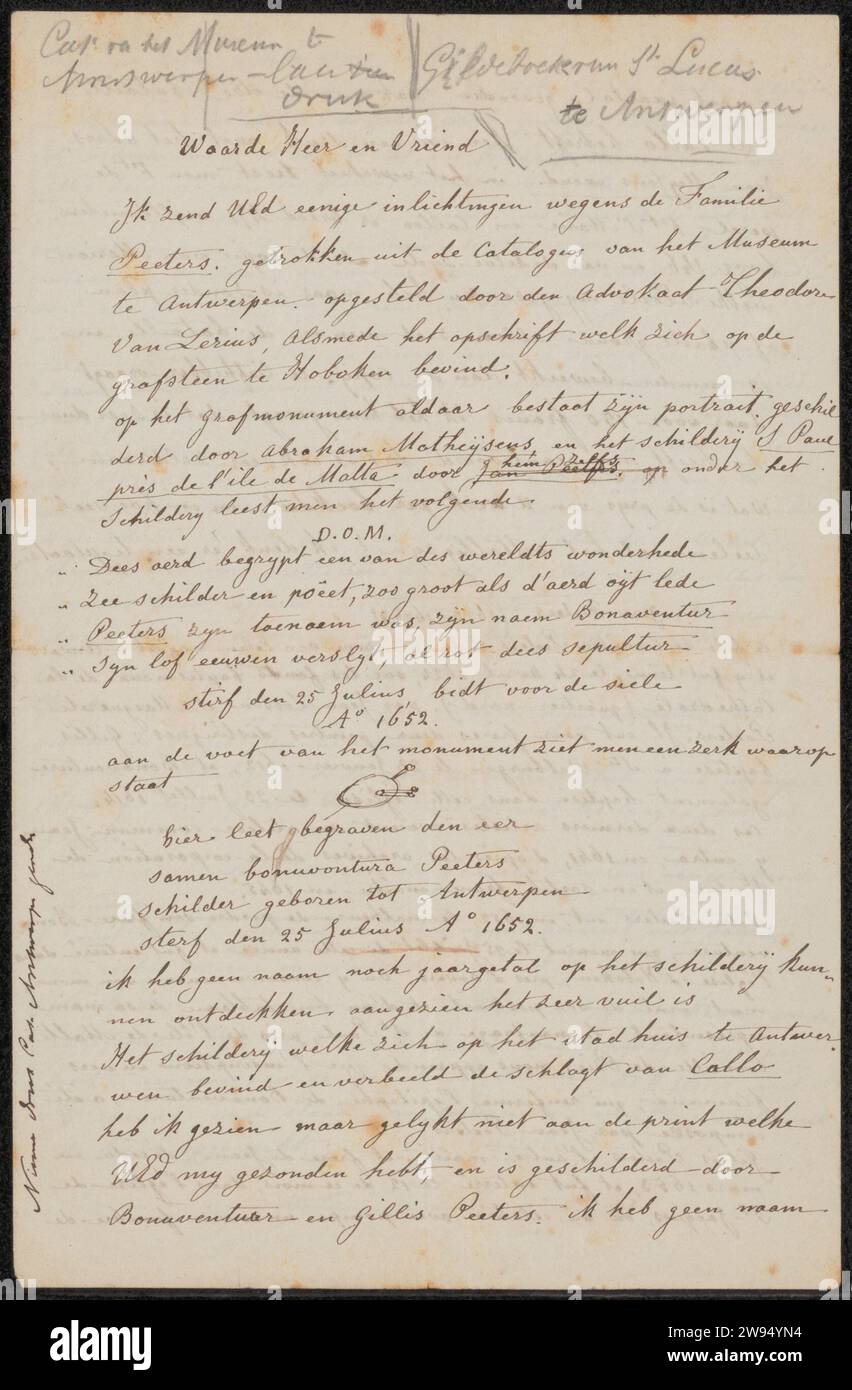 Cat. van het Museum te
Antwerpen – laatsten
druk
Gildeboek van St. Lucas
te Antwerpen
Waarde Heer en Vriend
Ik zend UEd eenige inlichtingen wegens de Familie
Peeters. getrokken uit de Catalogus van het Museum
te Antwerpen. opgesteld door den Advokaat Theodore
Van Lerius, alsmede het opschrift welk zich op de
grafsteen te Hoboken bevind.
op het grafmonument aldaar bestaat zijn portrait. geschil
derd door Abraham Matheijsens, en het schilderij S Paul
près de l'ile de Malta door Jan Peeters. hem zelfs op onder het
Schildery leest men het volgende.
D.O.M.
„ Dees aerd begrypt een van des wereldts wonderhede
„ Zee schilder en pöeet, zoo groot als d'aerd oÿt lede
„ Peeters zyn toenaem was, zyn naem Bonaventur
„ Syn lof eeuwen verslyt, al rot dees sepultur
stirf den 25 Julius, bidt voor de siele
Aº 1652.
aan de voet van het monument ziet men een zerk waarop
staat
hier leet begraven den eer
samen bonavontura Peeters
schilder geboren tot Antwerpen
sterf den 25 Julius Aº 1652.
ik heb geen naam noch jaargetal op het schilderij kun„
nen ontdekken. aangezien het zeer vuil is
Het schilderij welke zich op het stadhuis te Antwer
wen bevind en verbeeld de schlagt van Callo
heb ik gezien maar gelykt niet aan de print welke
UEd my gezonden hebt, en is geschilderd door
Bonaventuer en Gillis Peeters. ik heb geen naam
Cat. Antwerpen
alamy
Image ID: 2W94YN4
www.alamy.com